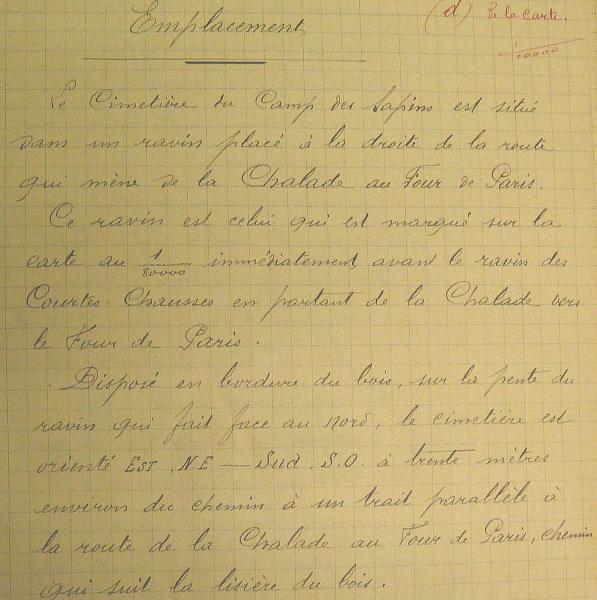 Emplacement
(d) de la carte.
1/10000
Le Cimetière du Camp des Sapins est situé
dans un ravin placé à la droite de la route
qui mène de la Chalade au Four de Paris.
Ce ravin est celui qui est marqué sur la
carte au 1/80000 immédiatement avant le ravin des
Courtes-Chausses en partant de la Chalade vers
le Four de Paris.
Disposé en bordure du bois, sur la pente du
ravin qui fait face au Nord, le cimetière est
orienté EST, N.E — Sud, S.O. à trente mètres
environ du chemin à un trait parallèle à
la route de la Chalade au Four de Paris, chemin
qui suit la lisière du bois.